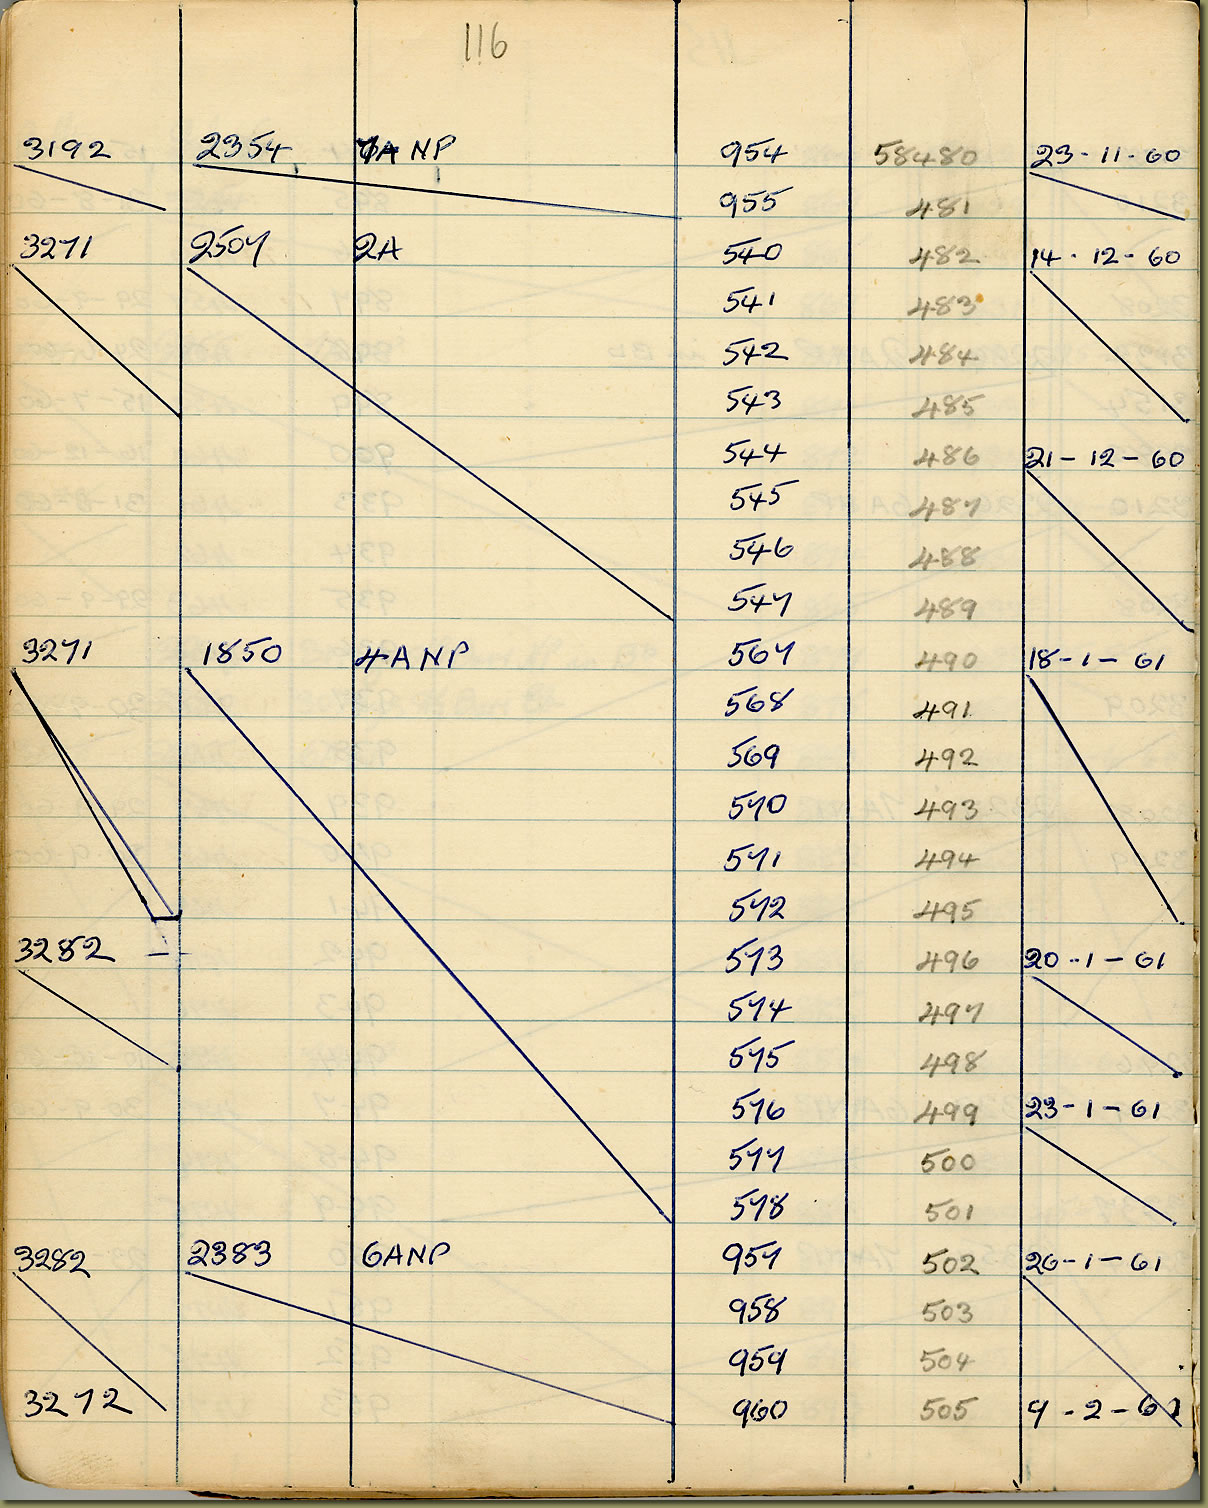 116
3192 2354 7A NP 954 58480 23-11-60
955 481
3271 2507 2A 540 482 14-12-60
541 483
542 484
543 485
544 486 21-12-60
545 487
546 488
547 489
3271 1850 4A NP 567 490 18-1-61
568 491
569 492
570 493
571 494
572 495
3282 573 496 20-1-61
574 497
575 498
576 499 23-1-61
577 500
578 501
3282 2383 6ANP 957 502 26-1-61
958 503
959 504
3272 960 505